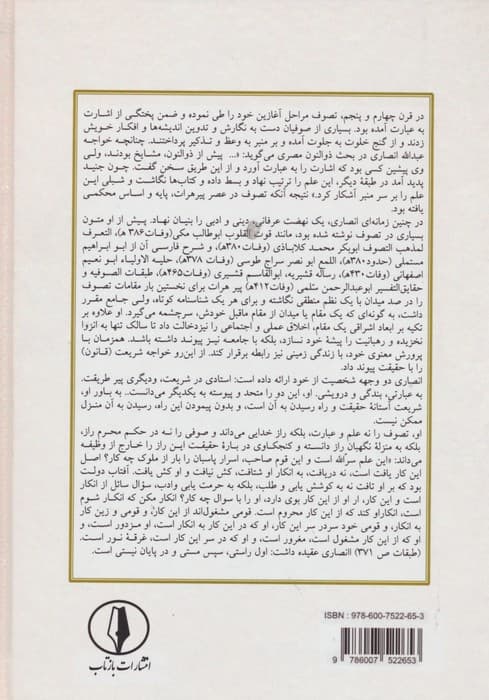 در قرن چهارم و پنجم، تصوف مراحل آغازین خود را طی نموده و ضمن پختگی از اشارت
به عبارت آمده بود. بسیاری از صوفیان دست به نگارش و تدوین اندیشه‌ها و افکار خویش
زدند و از گنج خلوت به جلوت آمده و بر منبر به وعظ و تذکیر پرداختند. چنانچه خواجه
عبدالله انصاری در بحث ذوالنون مصری می‌گوید: «... پیش از ذوالنون، مشایخ بودند، ولی
وی پیشین کسی بود که اشارت را به عبارت آورد و از این طریق سخن گفت. چون جنید
پدید آمد در طبقهٔ دیگر، این علم را ترتیب نهاد و بسط داده و کتاب‌ها نگاشت و شبلی این
علم را بر سر منبر آشکار کرد.» نتیجه آنکه تصوف در عصر پیرهرات، پایه و اساس محکمی
یافته بود.
در چنین زمانه‌ای انصاری، یک نهضت عرفانی، دینی و ادبی را بنیان نهاد. پیش از او متون
بسیاری در تصوف نوشته شده بود، مانند قوت القلوب ابوطالب مکی(وفات۳۸۶ ه)، التعرف
لمذهب التصوف ابوبکر محمد کلاباذی (وفات۳۸۰ه)، و شرح فارسی آن از ابو ابراهیم
مستملی (حدود۳۸۰ه)، اللمع ابو نصر سراج طوسی (وفات ۳۷۸ه)، حلیه الاولیاء ابو نعیم
اصفهانی (وفات۴۳۰ه)، رساله قشیریه، ابوالقاسم قشیری (وفات۴۶۵ه)، طبقات الصوفیه و
حقایق‌التفسیر ابوعبدالرحمن سلمی (وفات۴۱۲ه) پیر هرات برای نخستین بار مقامات تصوف
را در صد میدان با یک نظم منطقی نگاشته و برای هر یک شناسنامه کوتاه، ولی جامع مقرر
داشت، به گونه‌ای که یک مقام یا میدان از مقام ماقبل خودش، سرچشمه می‌گیرد. او علاوه بر
تکیه بر ابعاد اشراقی یک مقام، اخلاق عملی و اجتماعی را نیزدخالت داد تا سالک تنها به انزوا
نخزیده و رهبانیت را پیشهٔ خود نسازد، بلکه با جامعه نیز پیوند داشته باشد. همزمان با
پرورش معنوی خود، با زندگی زمینی نیز رابطه برقرار کند. از این‌رو خواجه شریعت (قانون)
را با حقیقت پیوند داد.
انصاری دو وجهه شخصیت از خود ارائه داده است: استادی در شریعت، ودیگری پیر طریقت.
به عبارتی، بندگی و درویشی. او، این دو را متحد و پیوسته به یکدیگر می‌دانست.. به باور او،
شریعت آستانهٔ حقیقت و راه رسیدن به آن است، و بدون پیمودن این راه، رسیدن به آن منزل
ممکن نیست.
او، تصوف را نه علم و عبارت، بلکه راز خدایی می‌داند و صوفی را نه در حکیم محرم راز،
بلکه به منزلهٔ نگهبان راز دانسته و کنجکاوی در بارهٔ حقیقت این راز را خارج از وظیفه
می‌داند: «این علم سرالله است و این قوم صاحب، اسرار پاسبان را بار از ملوک چه کار؟ اصل
این کار یافت است، نه دریافت، به انکار او شتافت، کش نیافت و او کش یافت. آفتاب دولت
بود که بر او تافت نه به کوشش یابی و طلب، بلکه به حرمت یابی وادب، سؤال سائل از انکار
است و این کار، ار او از این کار بوی دارد، او را با سوال چه کار؟ انکار مکن که انکار شوم
است، انکاراو کند که از این کار محروم است. قومی مشغول‌اند از این کار، و قومی و زین کار
به انکار، و قومی خود سردر سر این کار، او که در این کار به انکار است، او مزدور است، و
او که از این کار مشغول است، مغرور است، و او که در سر این کار است، غرقهٔ نور است.
(طبقات ص ۳۷۱) انصاری عقیده داشت: اول راستی، سپس مستی و در پایان نیستی است.
ISBN : 978-600-7522-65-3
9 786007 522653
انتشارات بازتاب